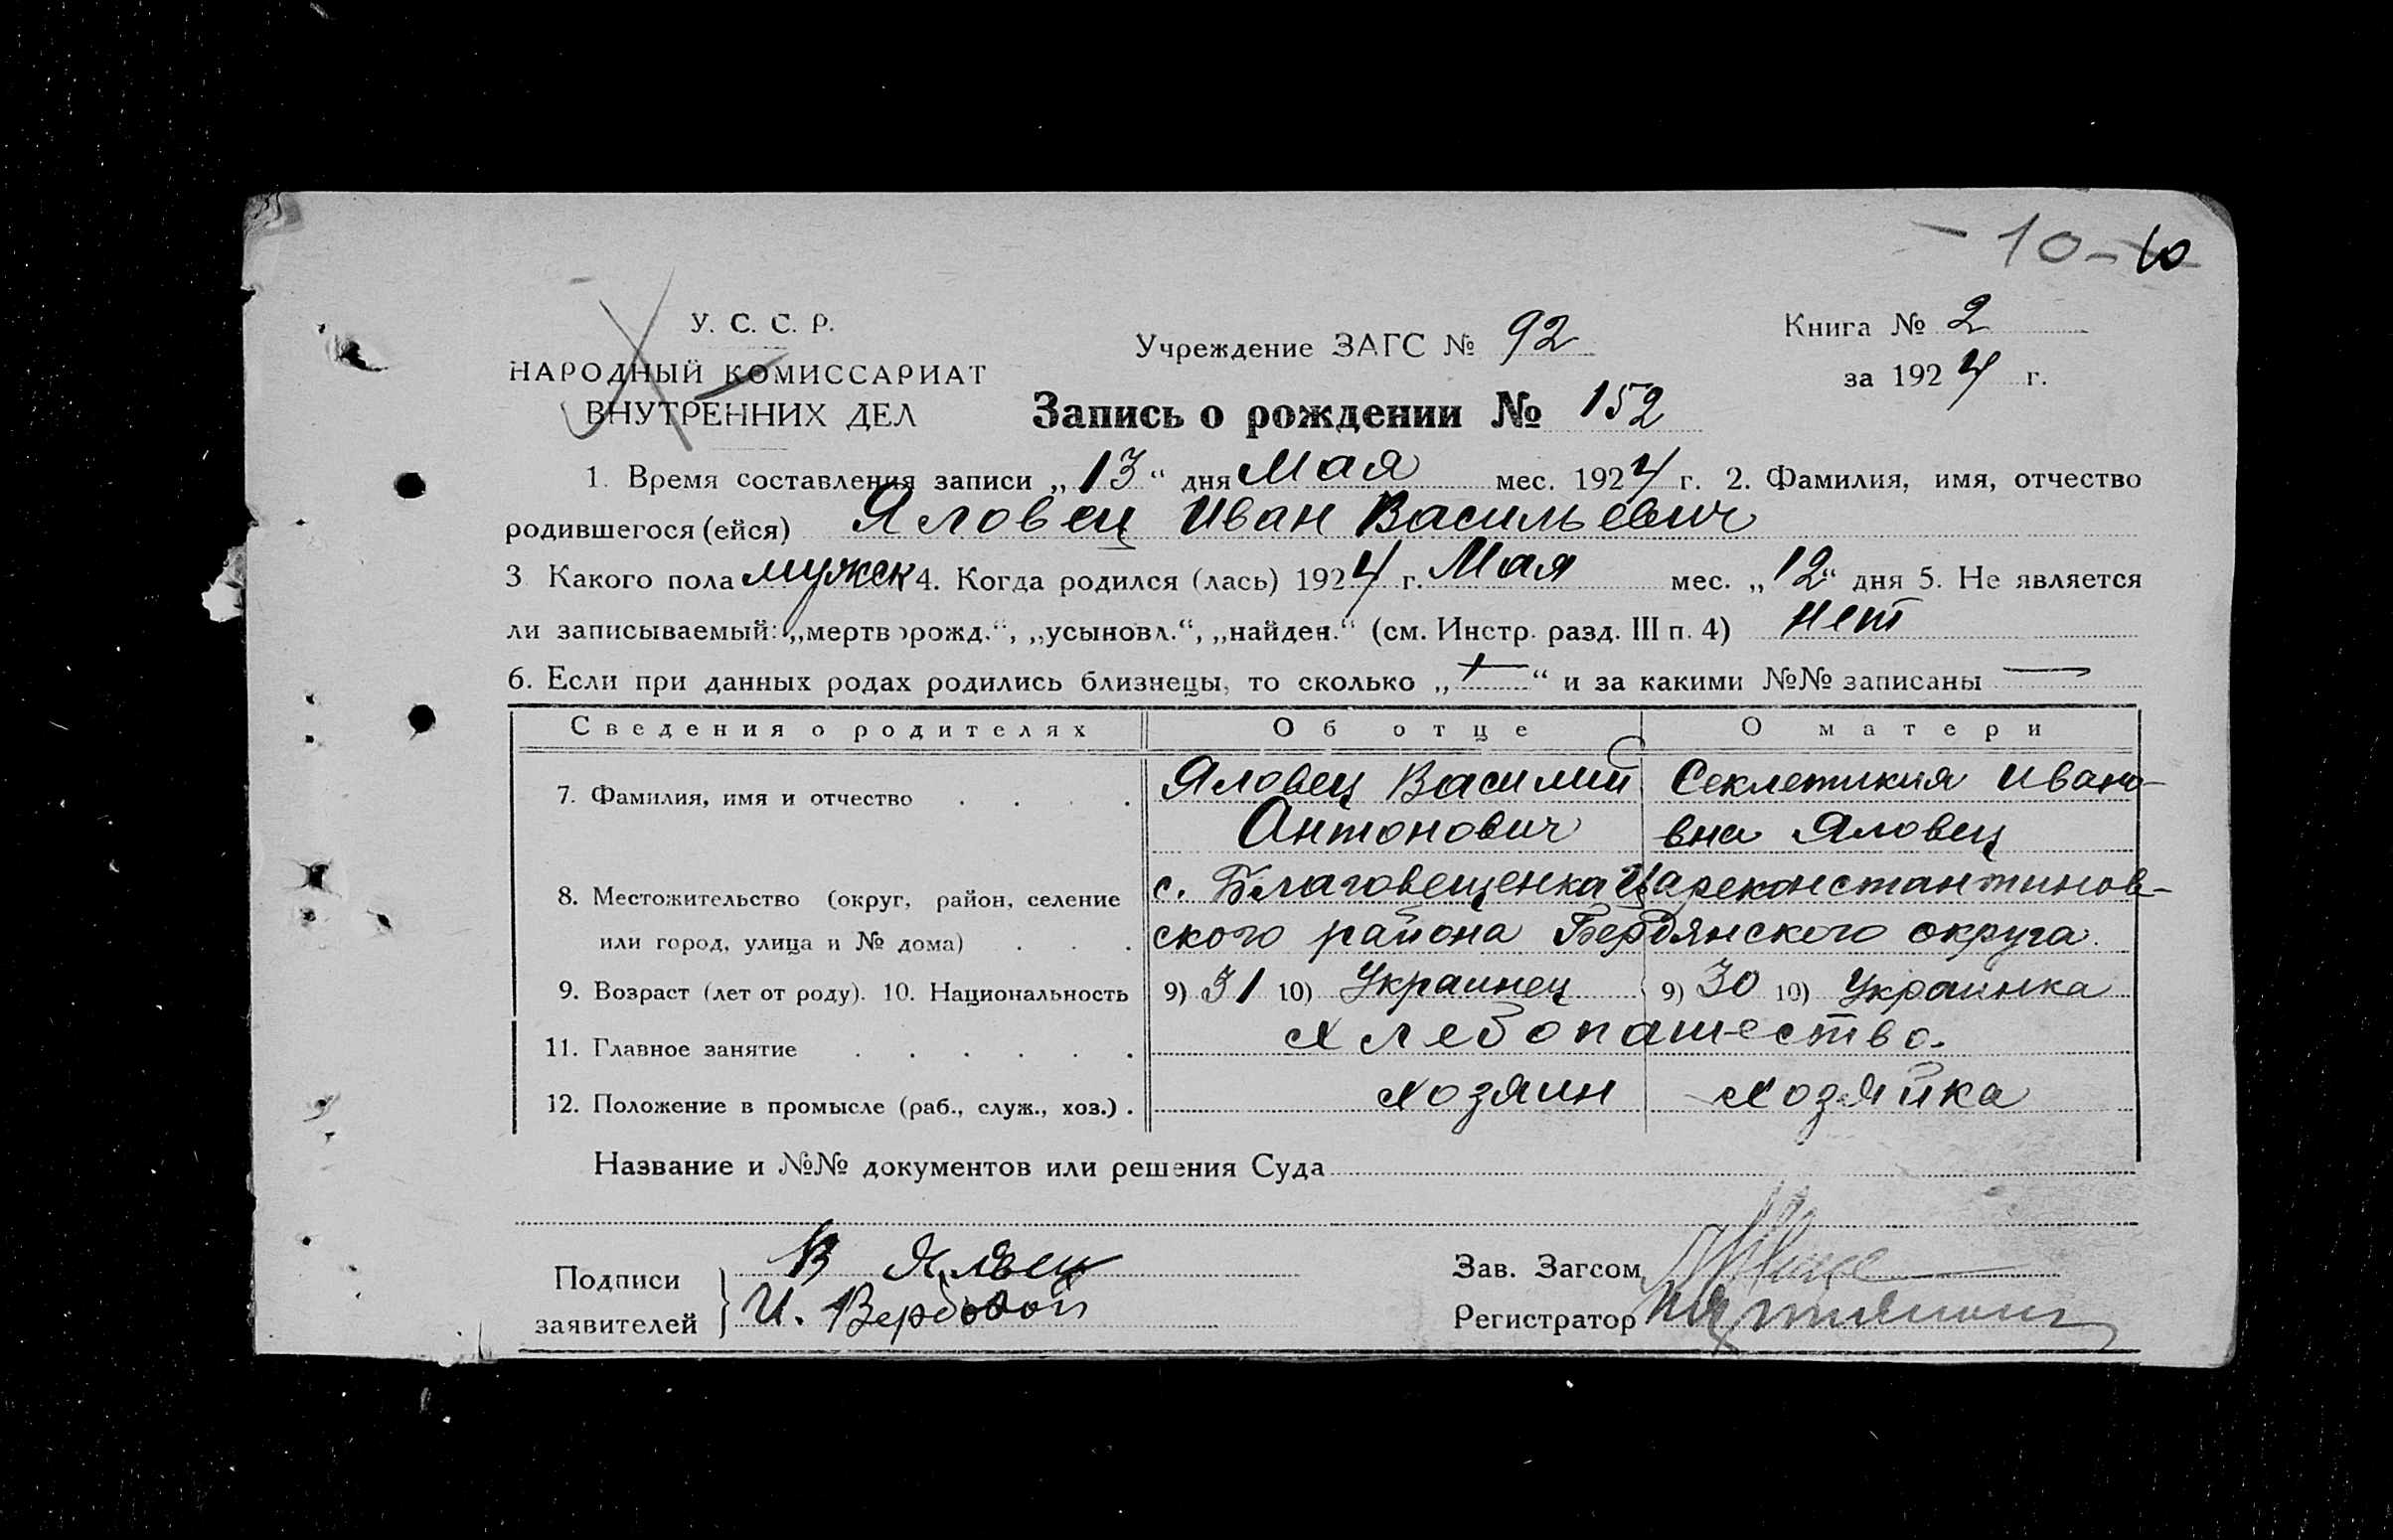 - 10 - 10
У. С. С. Р.
НАРОДНЫЙ КОМИССАРИАТ
ВНУТРЕННИХ ДЕЛ
Учреждение ЗАГС № 92
Книга № 2
за 1924 г.
Запись о рождении № 152
1. Время составления записи „13“ дня Мая мес. 1924 г. 2. Фамилия, имя, отчество
родившегося (ейся) Яловец Иван Васильевич
3 Какого пола мужск 4. Когда родился (лась) 1924 г. Мая мес. „12“ дня 5. Не является
ли записываемый: „мертворожд.“, „усыновл.“, „найден.“ (см. Инстр. разд. III п. 4) нет
6. Если при данных родах родились близнецы, то сколько „—“ и за какими №№ записаны —
Сведения о родителях Об отце О матери
7. Фамилия, имя и отчество . . . . Яловец Василий Секлетикия Ивано-
Антонович вна Яловец
8. Местожительство (округ, район, селение с. Благовещенка Цареконстантинов-
или город, улица и № дома) . . . ского района Бердянского округа.
9. Возраст (лет от роду). 10. Национальность 9) 31 10) Украинец 9) 30 10) Украинка
11. Главное занятие . . . . . . Хлебопашество.
12. Положение в промысле (раб., служ., хоз.) . хозяин хозяйка
Название и №№ документов или решения Суда
Подписи В Яловец
заявителей И. Вербовой
Зав. Загсом
Регистратор